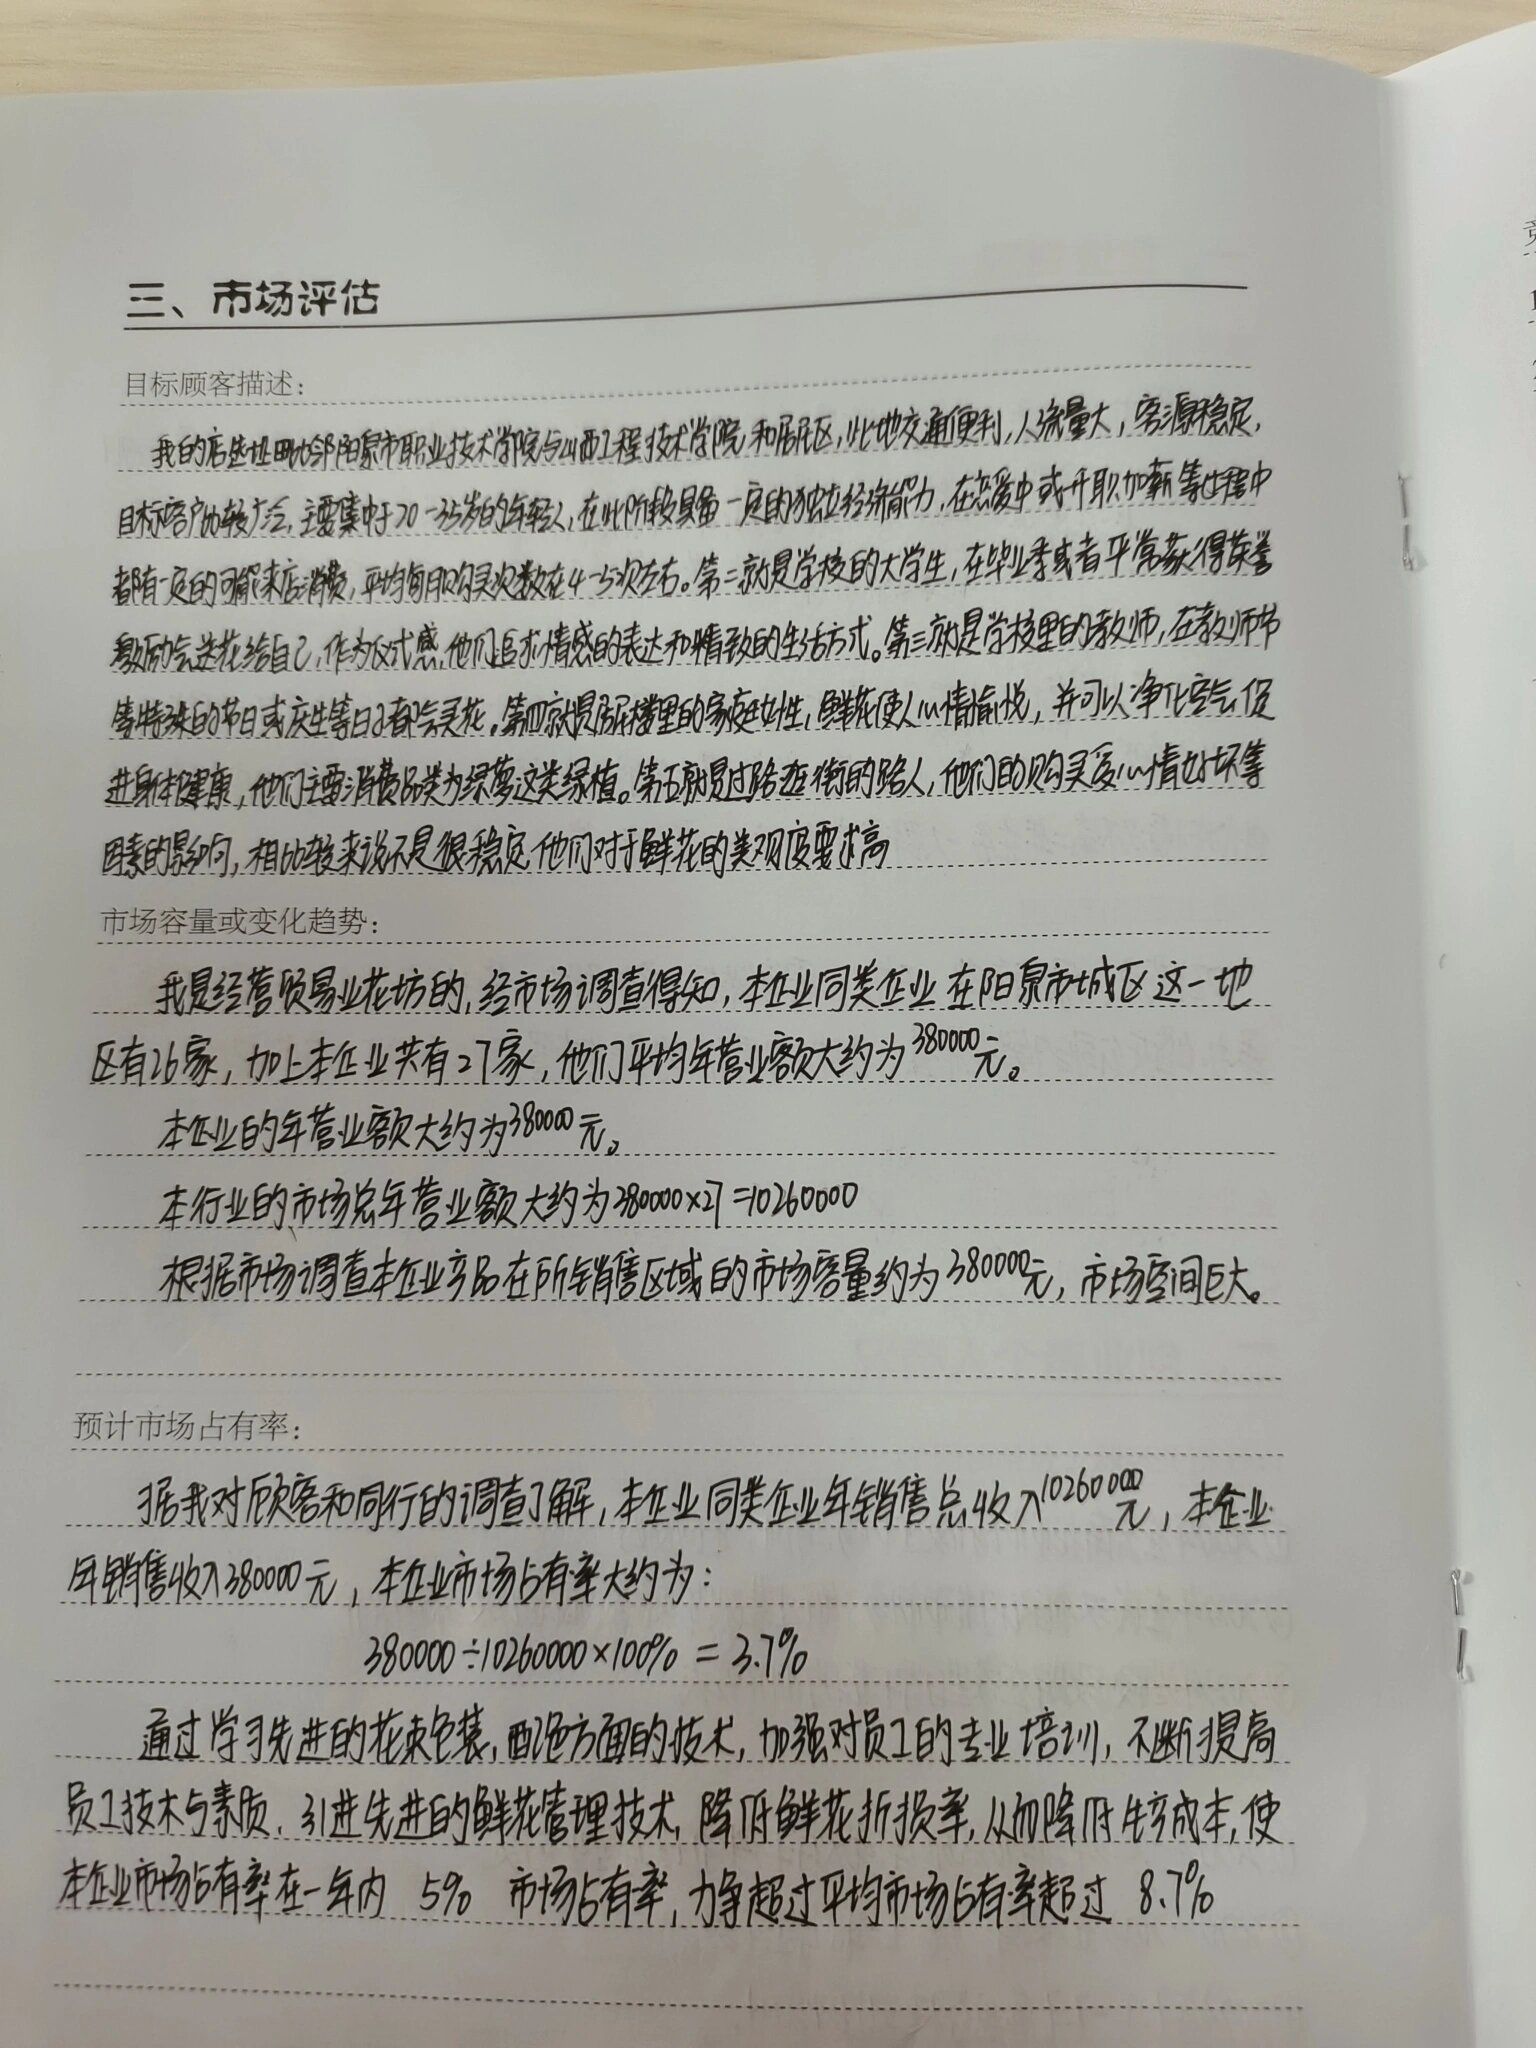 三、市场评估
目标顾客描述：
我的店选址毗邻阳泉市职业技术学院与山西工程技术学院和居民区，此地交通便利，人流量大，客源稳定，
目标客户比较广会，主要集中于20-35岁的年轻人，在此阶段具备一定的独立经济能力，在恋爱中或升职加薪等过程中
都有一定的可能来店消费，平均每月购买次数在4-5次左右。第二就是学校的大学生，在毕业季或者平常获得荣誉
激励会送花给自己，作为仪式感，他们追求情感的表达和精致的生活方式。第三就是学校里的教师，在教师节
等特殊的节日或庆生等日子都会买花。第四就是居民楼里的家庭女性，鲜花使人心情愉悦，并可以净化空气促
进身体健康，他们主要消费品类为绿萝这类绿植。第五就是过路逛街的路人，他们的购买受心情好坏等
因素的影响，相比较来说不是很稳定他们对于鲜花的美观度要求高
市场容量或变化趋势：
我是经营贸易业花坊的，经市场调查得知，本企业同类企业在阳泉市城区这一地
区有26家，加上本企业共有27家，他们平均年营业额大约为380000元。
本企业的年营业额大约为380000元。
本行业的市场总年营业额大约为380000×27=10260000
根据市场调查本企业产品在所销售区域的市场容量约为380000元，市场空间巨大。
预计市场占有率：
据我对顾客和同行的调查了解，本企业同类企业年销售总收入10260000元，本企业
年销售收入380000元，本企业市场占有率大约为：
380000÷10260000×100%=3.7%
通过学习先进的花束包装，配色方面的技术，加强对员工的专业培训，不断提高
员工技术与素质，引进先进的鲜花管理技术，降低鲜花折损率，从而降低生产成本，使
本企业市场占有率在一年内 5% 市场占有率，力争超过平均市场占有率超过 8.7%